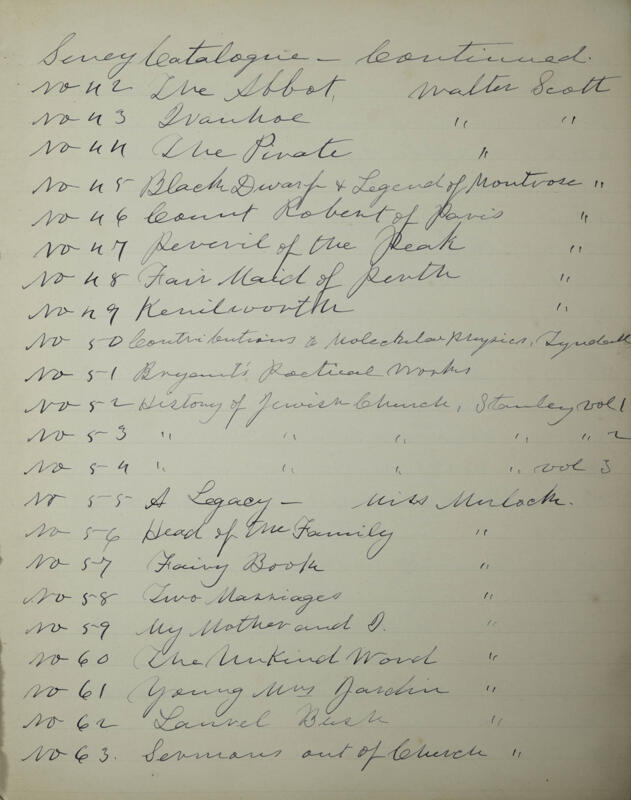 Seney Catalogue - Continued.
No 42 The Abbot, Walter Scott
No 43 Ivanhoe " "
No 44 The Pirate "
No 45 Black Dwarf & Legend of Montrose "
No 46 Count Robert of Paris "
No 47 Peveril of the Peak "
No 48 Fair Maid of Perth "
No 49 Kenilworth "
No 50 Contributions to Moleckular Physics, Tyndall
No 51 Bryant's Poetical Works
No 52 History of Jewish Church, Stanley vol 1
No 53 " " " " " 2
No 54 " " " " vol 3
No 55 A Legacy - Miss Mulock.
No 56 Head of the Family "
No 57 Fairy Book "
No 58 Two Marriages "
No 59 My Mother and I. "
No 60 The Unkind Word "
No 61 Young Mrs Jardin "
No 62 Laurel Bush "
No 63. Sermons out of Church "